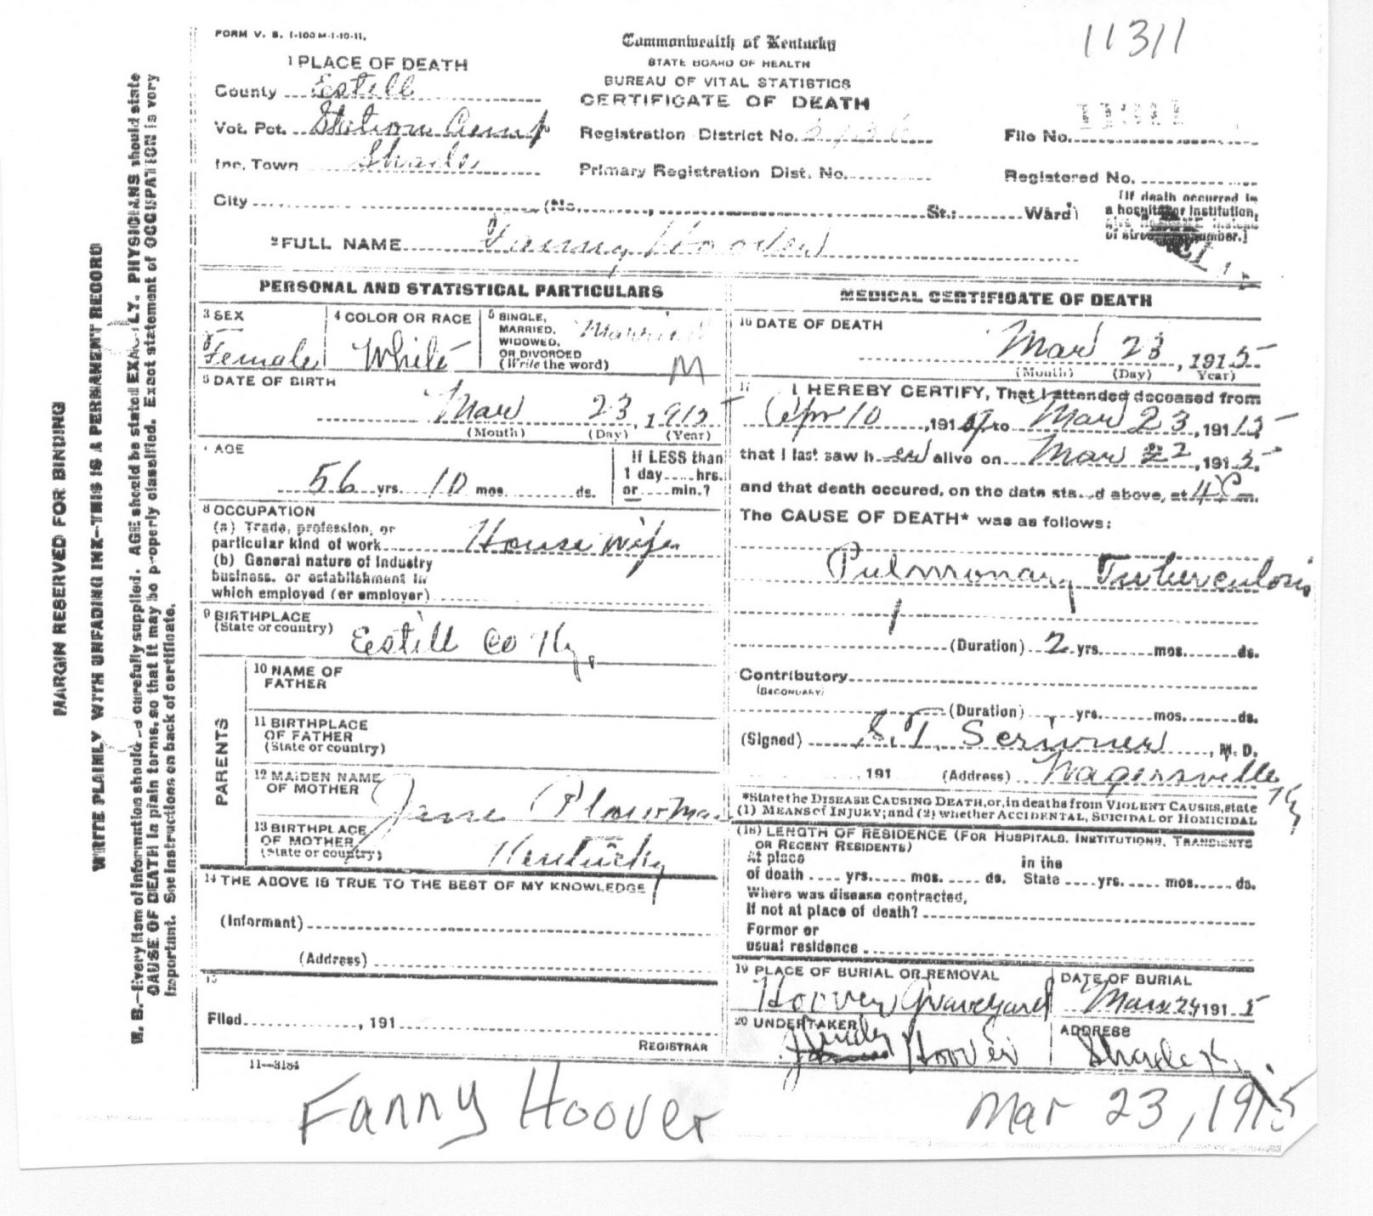 FORM V. S. 1-100 M-1-10-11.
Commonwealth of Kentucky
STATE BOARD OF HEALTH
BUREAU OF VITAL STATISTICS
CERTIFICATE OF DEATH
11311
1 PLACE OF DEATH
County Estill
Vot. Pct. Station Camp
Inc. Town Shade
Registration District No.
File No.
Primary Registration Dist. No.
Registered No.
City (No. , St.: Ward)
[If death occurred in
a hospital or institution,
of street number.]
2 FULL NAME Fanny Hoover
PERSONAL AND STATISTICAL PARTICULARS
3 SEX
Female
4 COLOR OR RACE
White
5 SINGLE,
MARRIED,
WIDOWED,
OR DIVORCED
(Write the word)
Married
M
DATE OF BIRTH
Mar 23, 1915
(Month) (Day) (Year)
AGE
56 yrs. 10 mos. ds.
If LESS than
1 day hrs.
or min.?
8 OCCUPATION
(a) Trade, profession, or
particular kind of work House wife
(b) General nature of industry
business, or establishment in
which employed (or employer)
9 BIRTHPLACE
(State or country) Estill Co Ky.
PARENTS
10 NAME OF
FATHER
11 BIRTHPLACE
OF FATHER
(State or country)
12 MAIDEN NAME
OF MOTHER
Jane
13 BIRTHPLACE
OF MOTHER
(State or country)
Kentucky
14 THE ABOVE IS TRUE TO THE BEST OF MY KNOWLEDGE
(Informant)
(Address)
15
Filed , 191
REGISTRAR
11—3184
MEDICAL CERTIFICATE OF DEATH
16 DATE OF DEATH
Mar 23, 1915
(Month) (Day) Year)
17 I HEREBY CERTIFY, That I attended deceased from
Apr 10, 191 to Mar 23, 1915
that I last saw her alive on Mar 22, 1915
and that death occured, on the date stated above, at 4 P m.
The CAUSE OF DEATH* was as follows:
Pulmonary Tuberculosis
(Duration) 2 yrs. mos. ds.
Contributory
(SECONDARY)
(Duration) yrs. mos. ds.
(Signed) S. T. Scrivner, M. D.
191 (Address) Wagersville Ky
*State the DISEASE CAUSING DEATH, or, in deaths from VIOLENT CAUSES, state
(1) MEANS of INJURY; and (2) whether ACCIDENTAL, SUICIDAL or HOMICIDAL
(18) LENGTH OF RESIDENCE (FOR HOSPITALS, INSTITUTIONS, TRANSIENTS
OR RECENT RESIDENTS)
At place
of death yrs. mos. ds.
in the
State yrs. mos. ds.
Where was disease contracted,
If not at place of death?
Former or
usual residence
19 PLACE OF BURIAL OR REMOVAL
Hoover Graveyard
DATE OF BURIAL
Mar 24 1915
20 UNDERTAKER
Hoover
ADDRESS
Shade Ky.
Fanny Hoover
Mar 23, 1915
MARGIN RESERVED FOR BINDING
WRITE PLAINLY WITH UNFADING INK—THIS IS A PERMANENT RECORD
N. B.—Every item of information should be carefully supplied. AGE should be stated EXACTLY. PHYSICIANS should state
CAUSE OF DEATH in plain terms, so that it may be properly classified. Exact statement of OCCUPATION is very
important. See instructions on back of certificate.